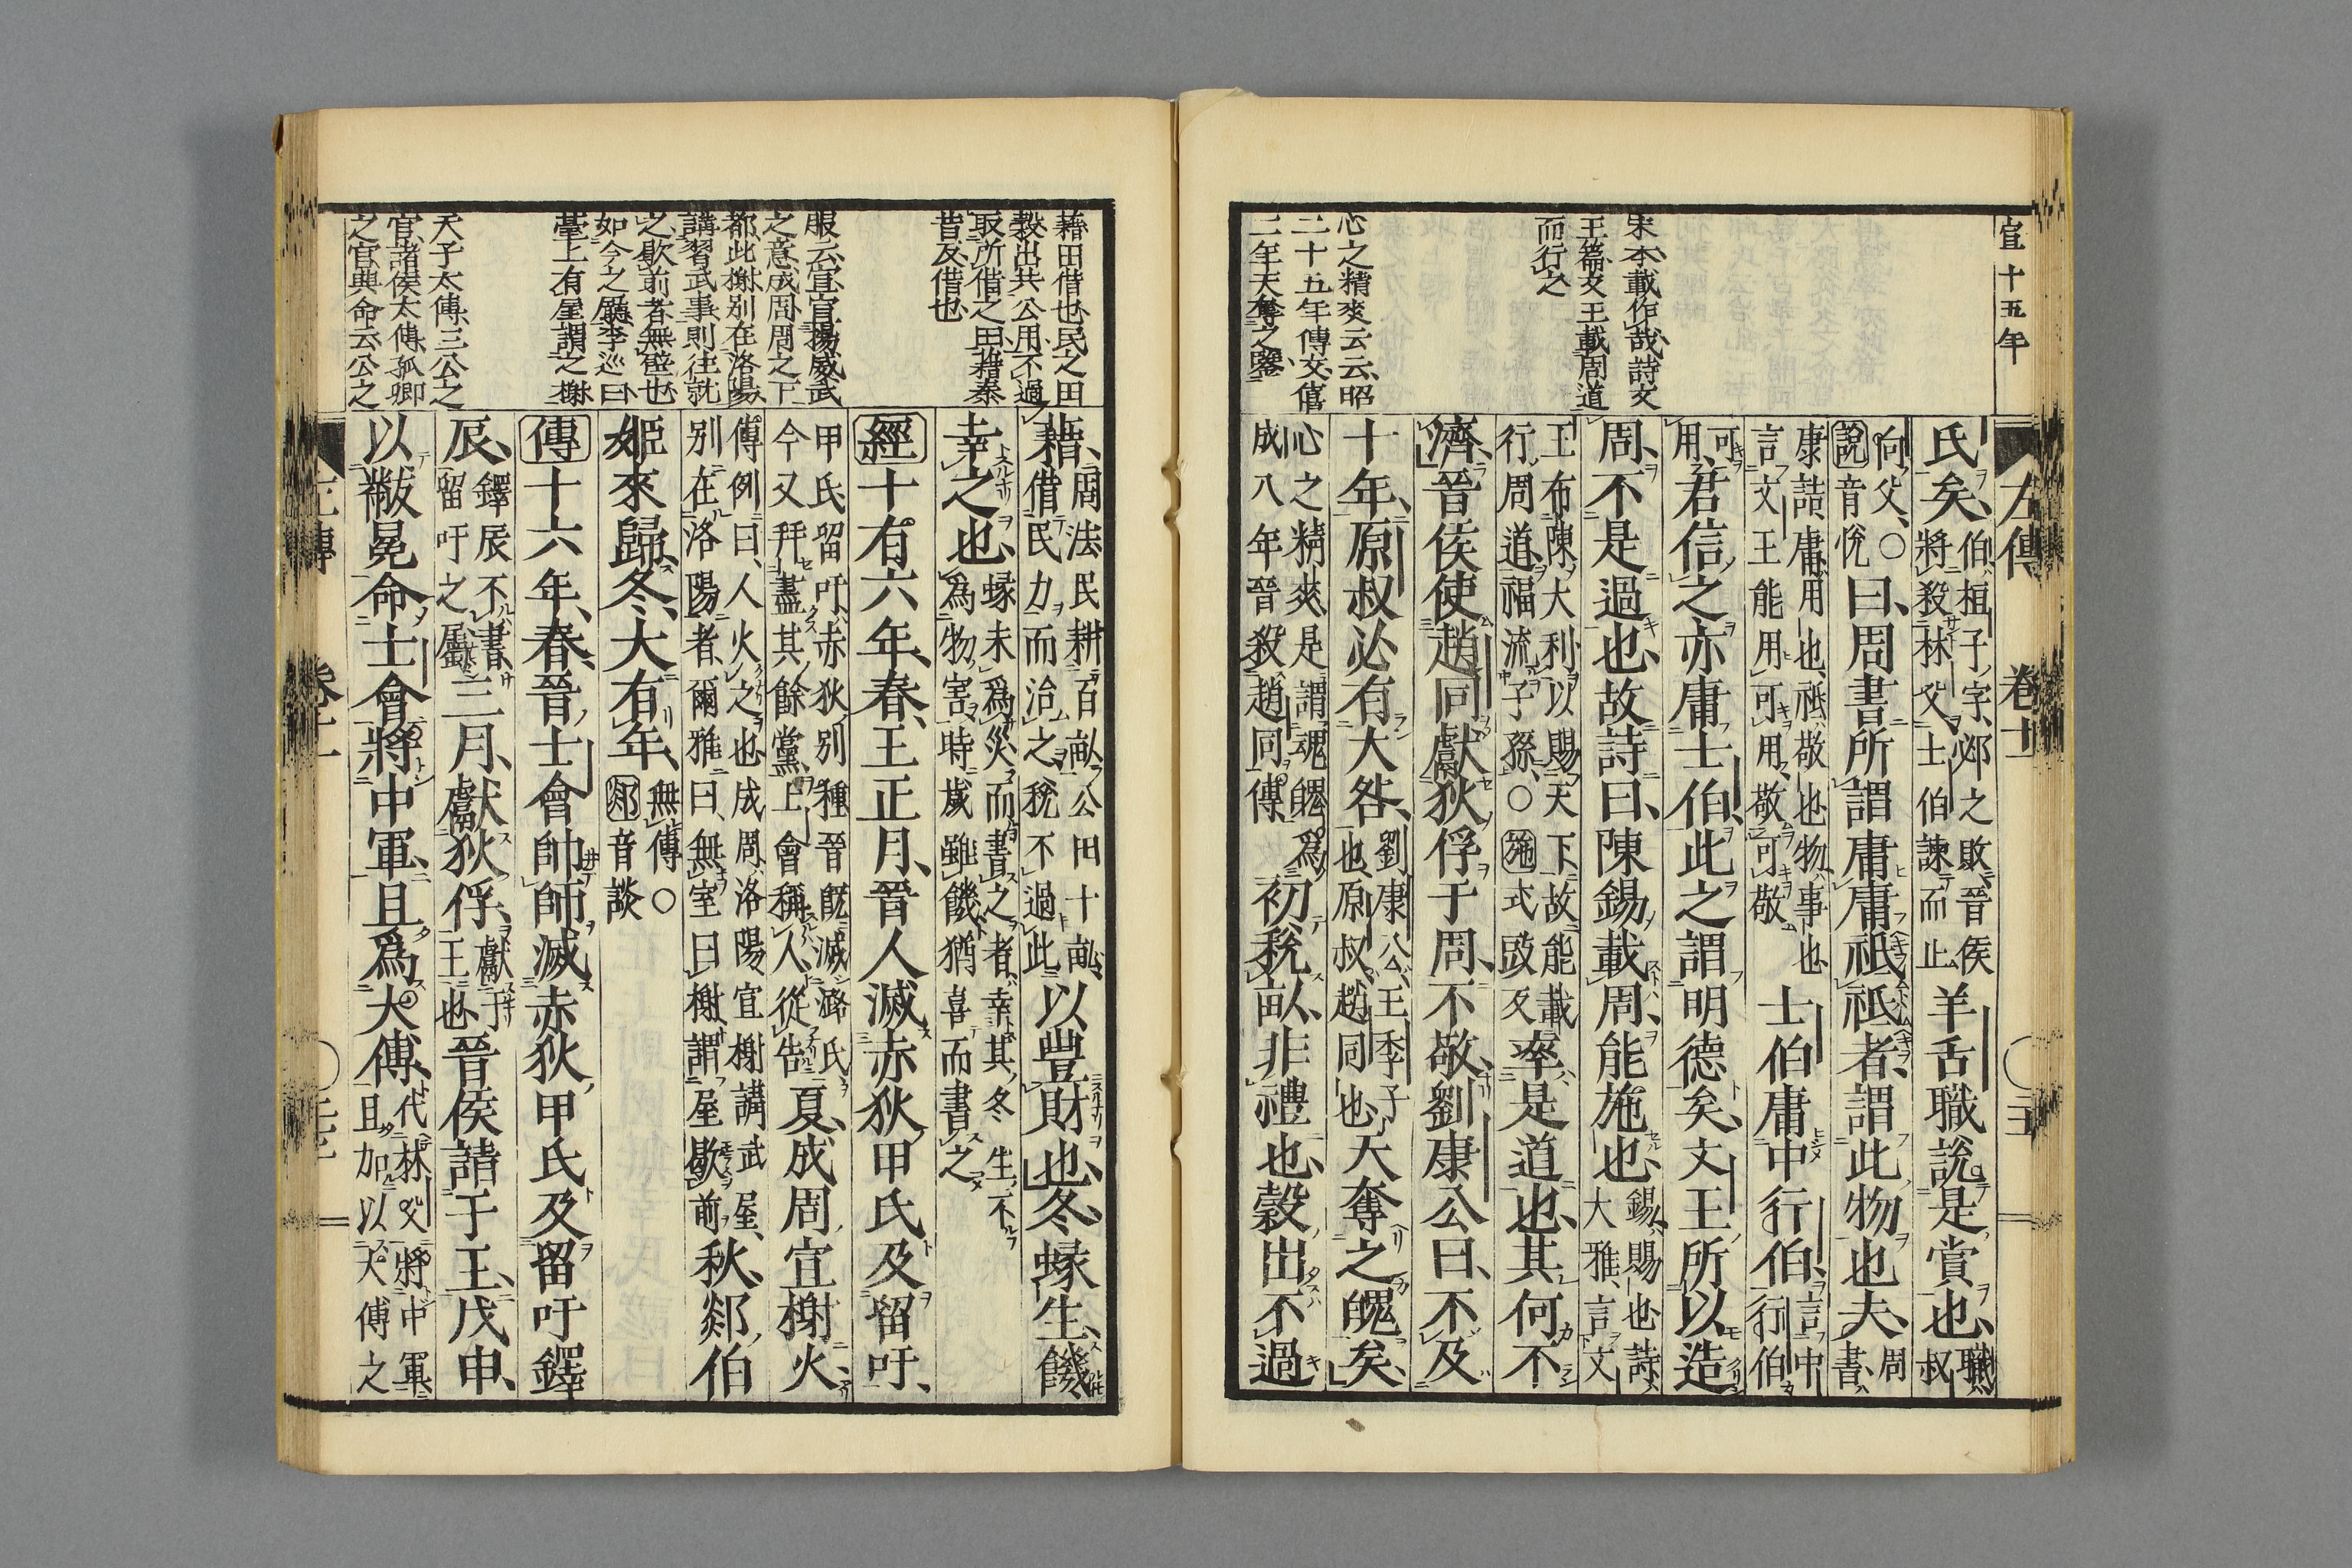 宣十五年
左傳 卷十一
宋本載作哉詩文
王篇文王載周道
而行之
心之精爽云云昭
二十五年傳文僖
二年天奪之鑒
氏矣、伯桓子字、邲之敗晉侯將殺林父、士伯諫而止羊舌職說是賞也、職叔
向父、○說音悅曰、周書所謂庸庸祗祗者、謂此物也夫、周書
康誥、庸用也、祗敬也物事也言文王能用可用、敬可敬士伯庸中行伯、言中行伯
可用、君信之亦庸士伯、此之謂明德矣、文王所以造
周、不是過也、故詩曰、陳錫載周、能施也、錫賜也詩大雅、言文
王布陳大利以賜天下、故能載行周道、福流子孫、○施式豉反率是道也、其何不
濟、晉侯使趙同獻狄俘于周、不敬、劉康公曰、不及
十年、原叔必有大咎、劉康公、王季子也、原叔、趙同也、天奪之魄矣、
心之精爽是謂魂魄、爲成八年晉殺趙同傳初稅畝、非禮也、穀出不過
藉田借也、民之田
穀出共公用不過
取所借之田藉秦
昔反借也
服云宣宣揚威武
之意成周周之下
都、此榭別在洛陽
講習武事則往就
之歇前者無壁也
如今之廳李巡曰
臺上有屋謂之榭
天子太傅三公之
官、諸侯太傅孤卿
之官典命云公之
藉、周法民耕百畝公田十畝、借民力而治之稅不過此以豐財也、冬、蝝生、饑、
幸之也、蝝未爲災、而書之者、幸其冬生、不爲物害、時歲雖饑、猶喜而書之
經十有六年、春、王正月、晉人滅赤狄甲氏及留吁、
甲氏留吁、赤狄別種晉旣滅潞氏今又拜盡其餘黨、士會稱人、從告夏、成周宣榭火、
傳例曰、人火之也成周、洛陽宣榭講武屋、別在洛陽者、爾雅曰、無室曰榭謂屋歇前秋、郯伯
姬來歸、冬、大有年、無傳○郯音談
傳十六年、春、晉士會帥師滅赤狄甲氏及留吁鐸
辰、鐸辰不書、留吁之屬三月、獻狄俘、獻于王也晉侯請于王、戊申、
以黻冕命士會將中軍、且爲大傅、代林父將中軍且加以大傅之